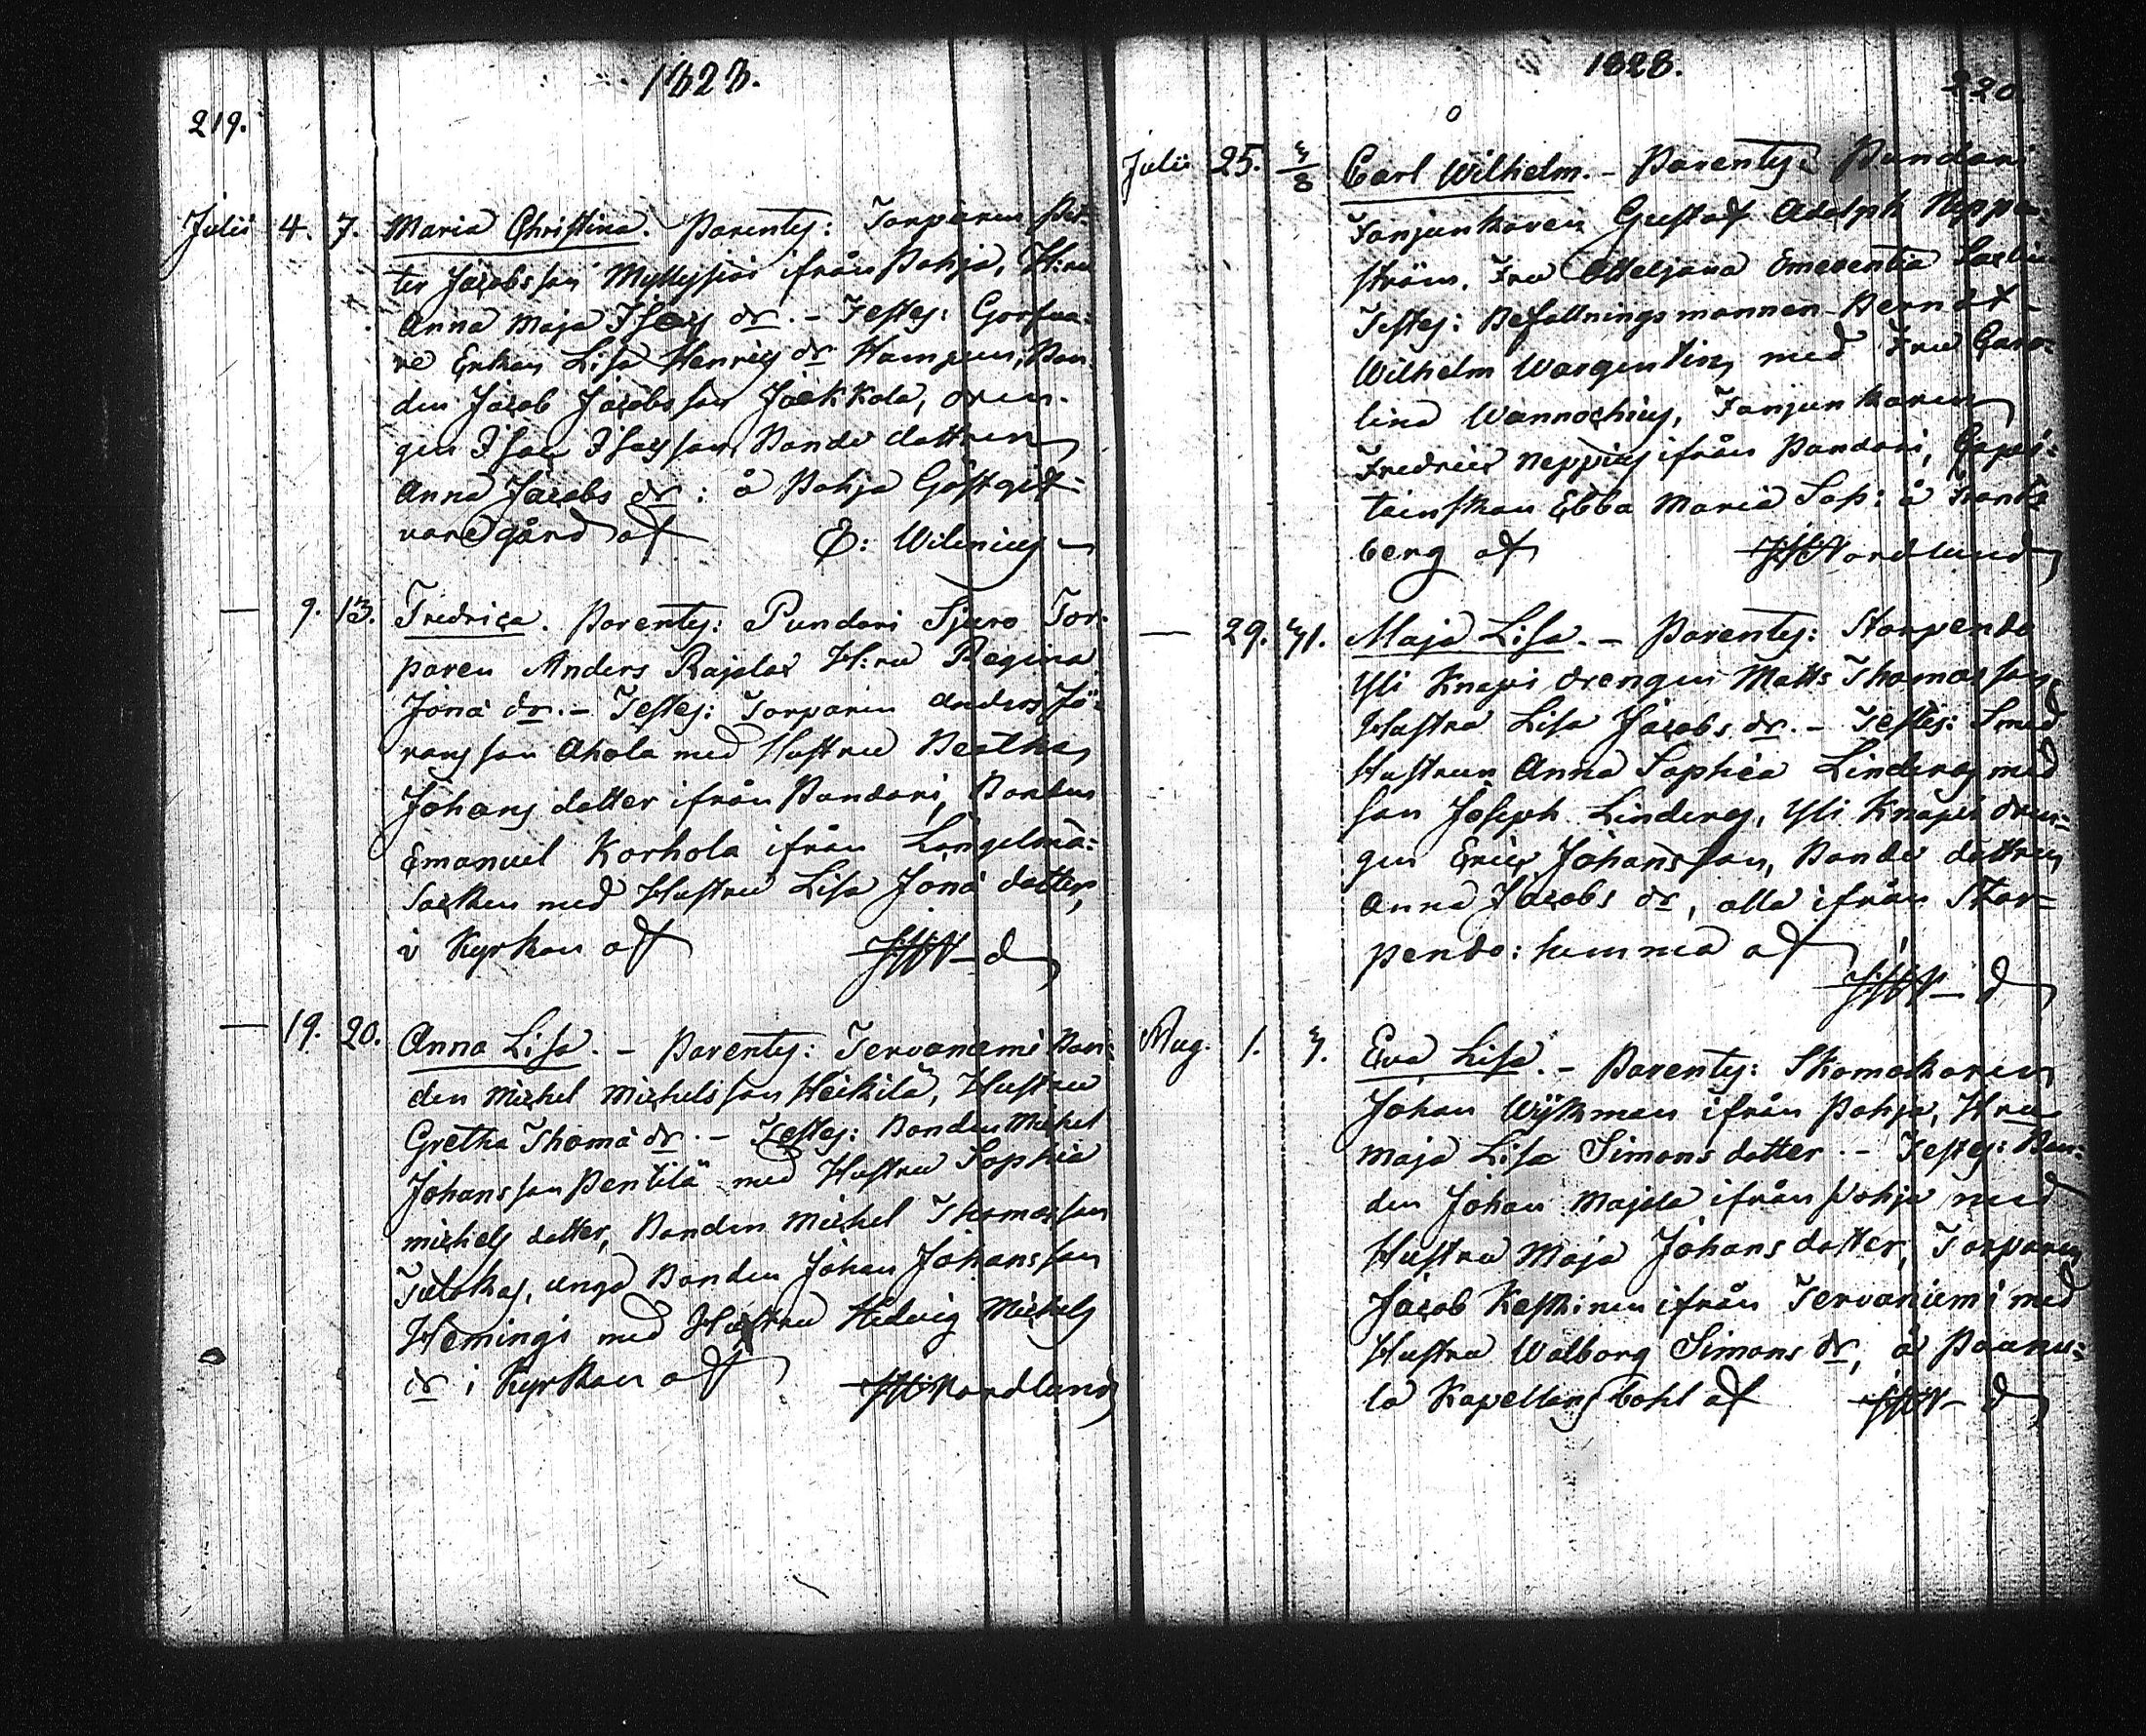 1828.
219.
Julii 4. 7. Maria Christina. Parentes: Torparen Pet-
ter Jacobsson Myllysjoi ifrån Pohja, H:ru
Anna Maja Isacs dr. - Testes: Garfva-
re Enkan Lisa Henrics dr Hampun, Bon-
den Jacob Jacobsson Jäekkola, dren-
gen Isac Isacsson, Bonde dottren
Anna Jacobs dr: å Pohja Gästgif-
varegård af E: Wilenius
— 9. 13. Fredrica. Parentes: Pundari Sjuro Tor-
paren Anders Rajala H:ru Regina
Jona dr. - Testes: Torparen Anders Jö-
ransson Ahola med Hustru Beatha
Johans dotter ifrån Pundari, Bonden
Emanuel Korhola ifrån Längelmä-
Socken med Hustru Lisa Jona dotter,
i Kyrkan af JHN-d
— 19. 20. Anna Lisa. - Parentes: Tervaniemi Bon-
den Michel Michelsson Heikilä, Hustru
Gretha Thoma dr. - Testes: Bonden Michel
Johansson Pentilä med Hustru Sophia
Michels dotter, Bonden Michel Thomasson
Tulokas, unga Bonden Johan Johansson
Hemingi med Hustru Hedvig Michels
dr i Kyrkan af JHNordlund
1828.
220.
Julii 25. 3/8 Carl Wilhelm. - Parentes: Pundari
Fanjunkaren Gustaf Adolph Neppen-
ström, Fru Otteljana Emerentia
Testes: Befallningsmannen Berndt
Wilhelm Wargentin, med Fru Caro-
lina Wannochius, Fanjunkaren
Fredric Neppius ifrån Pundari, Capi-
tainskan Ebba Maria Sass: å
berg af JHNordlund
— 29. 31. Maja Lisa. - Parentes: Storpendo
Yli Knapi drengen Matts Thomasson
Hustru Lisa Jacobs dr. - Testes: Smed
Hustrun Anna Sophia Linderos med
son Joseph Linderos, Yli Knapi dren-
gen Eric Johansson, Bonde dottren
Anna Jacobs dr, alla ifrån Stor-
pendo: hemma af
JHN-d
Aug. 1. 3. Eva Lisa. - Parentes: Skomakaren
Johan Wÿkman ifrån Pohja, Hru
Maja Lisa Simons dotter. - Testes: Bon-
den Johan Majela ifrån Pohja med
Hustru Maja Johans dotter, Torparen
Jacob Keskinen ifrån Tervaniemi med
Hustru Walborg Simons dr, å Paanu-
la Kapellans bohl af JHN-d